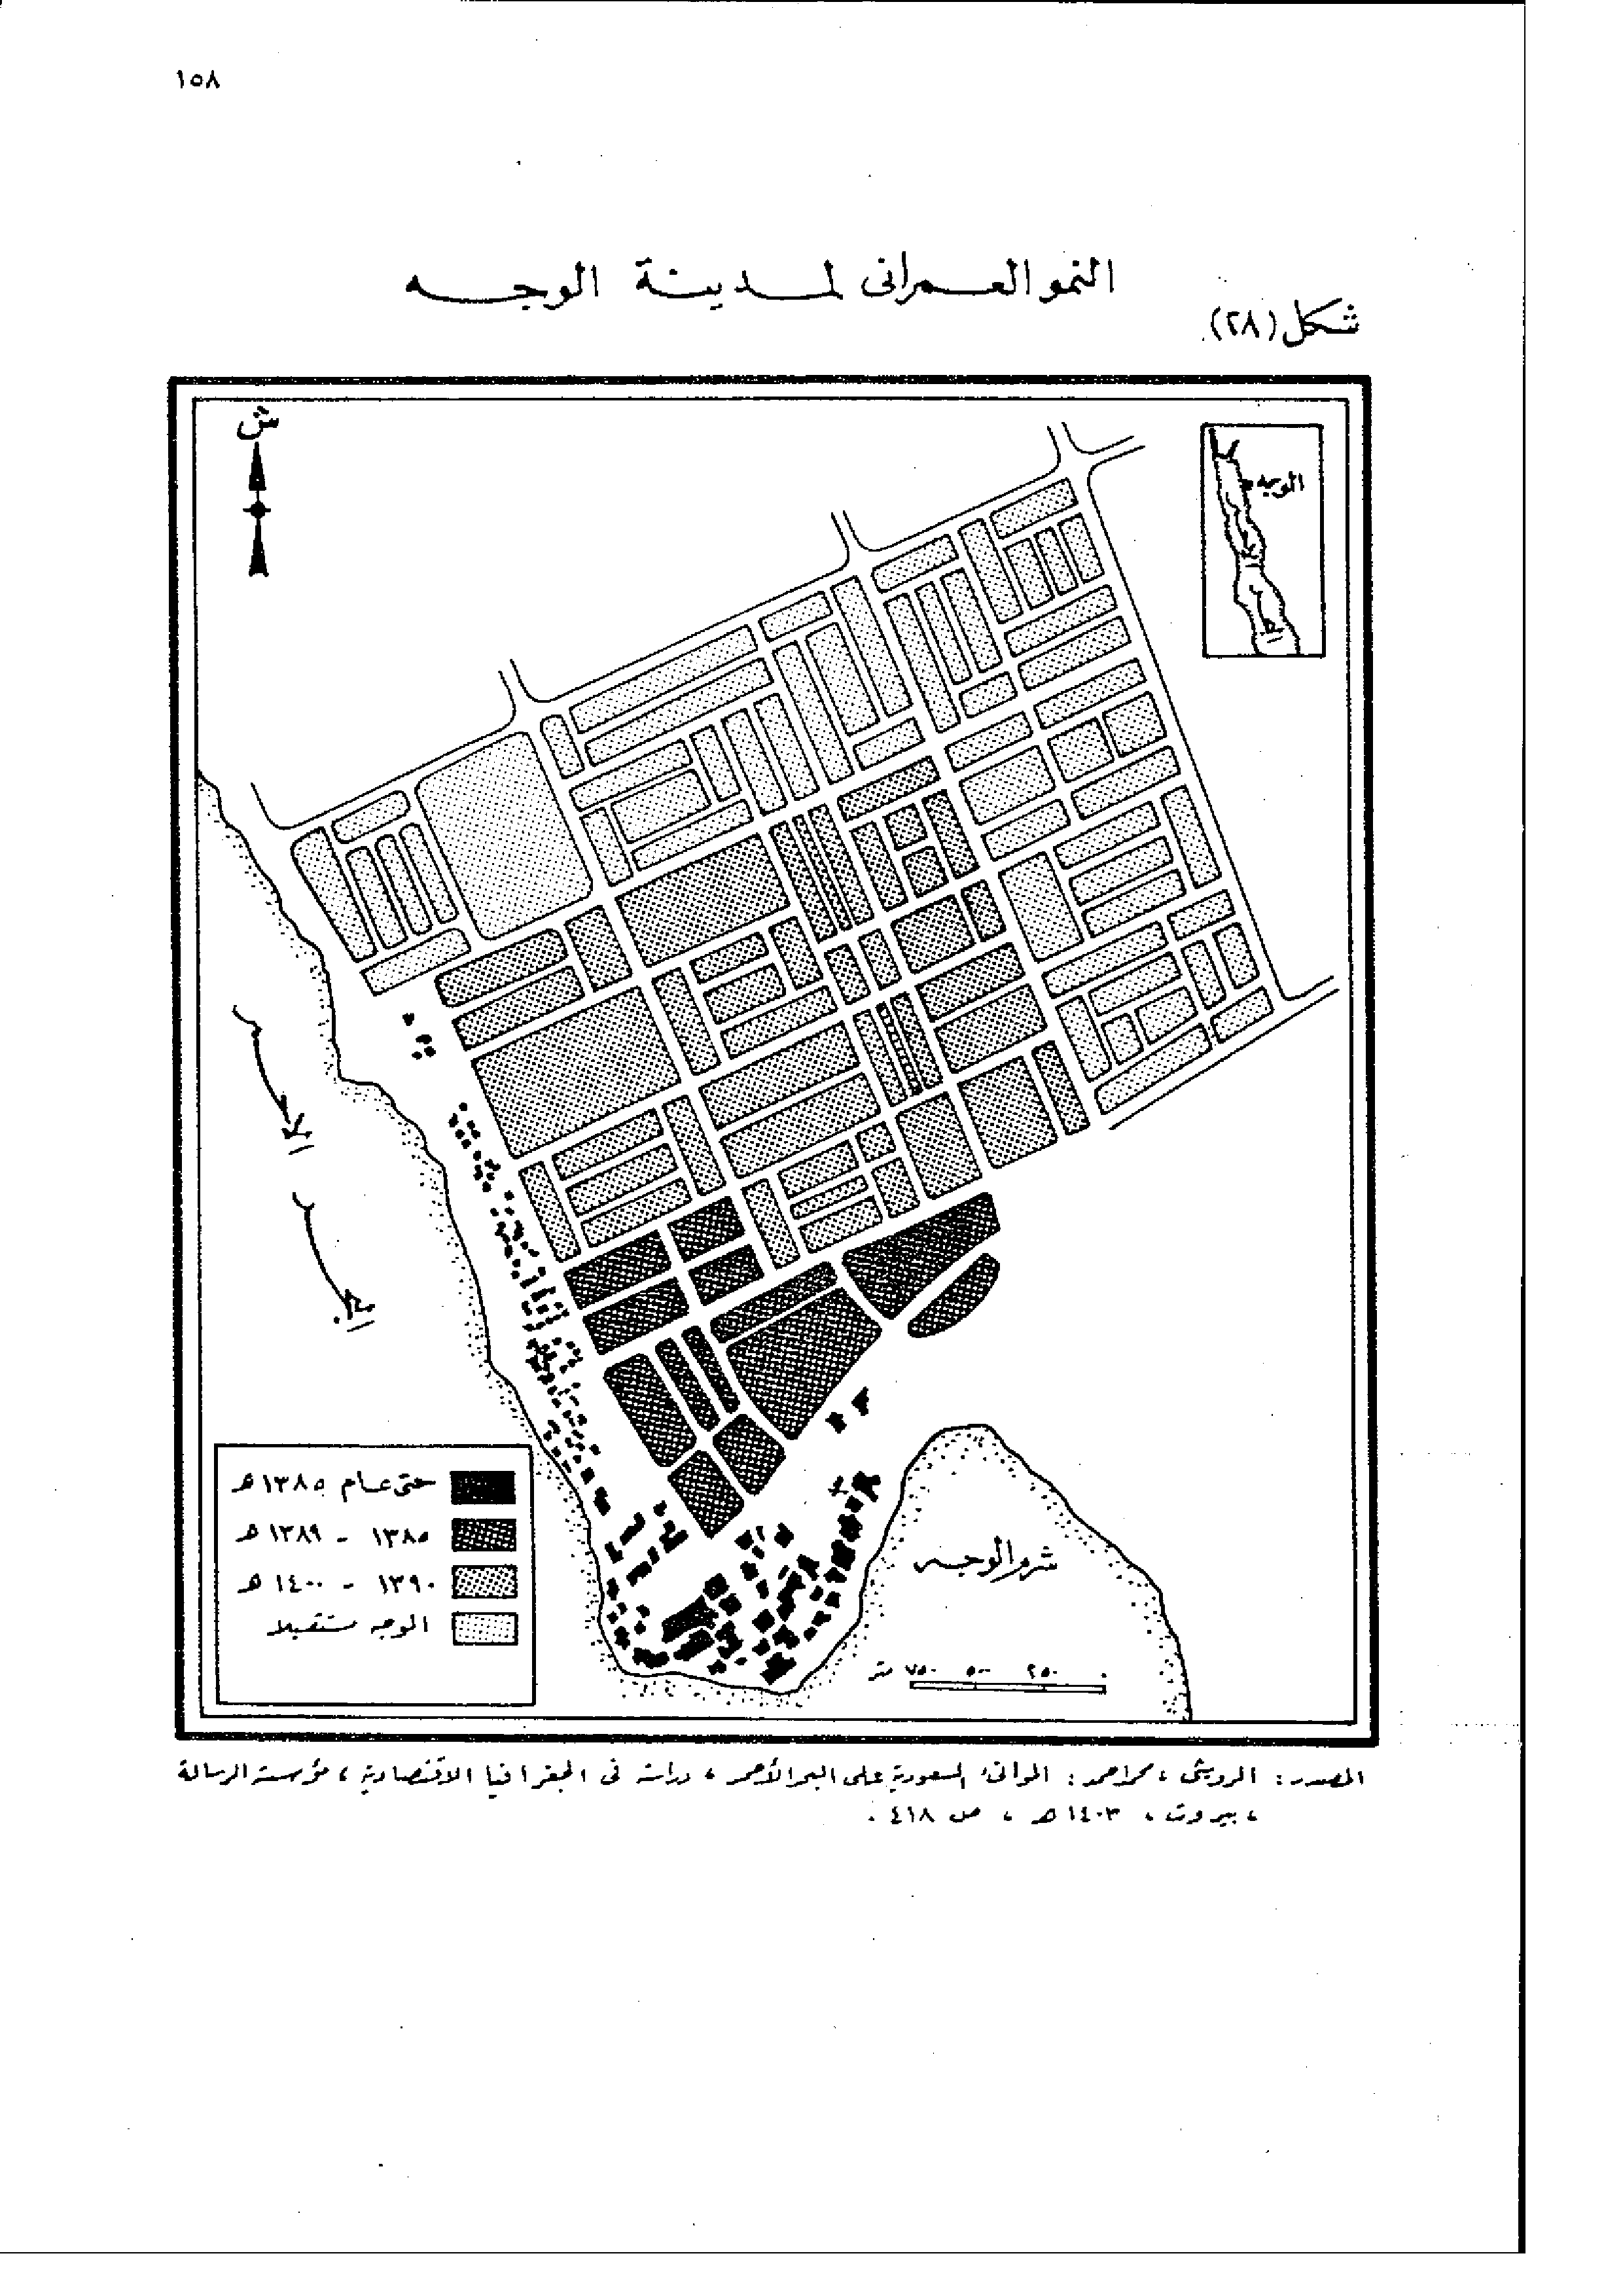 ١٥٨
النمو العمرانى لمدينة الوجه
شكل (٢٨)
ش
الوجه
البحر
الأحمر
حتى عام ١٣٨٥ هـ
١٣٨٥ - ١٣٨٩ هـ
١٣٩٠ - ١٤٠٠ هـ
الوجه مستقبلا
شرم الوجه
٠ ٢٥٠ ٥٠٠ ٧٥٠ متر
المصدر : الرويثى ، محمد احمد : الموانئ السعودية على البحر الأحمر ، دراسة فى الجغرافيا الاقتصادية ، مؤسسة الرسالة
، بيروت ، ١٤٠٣ هـ ، ص ٤١٨ .